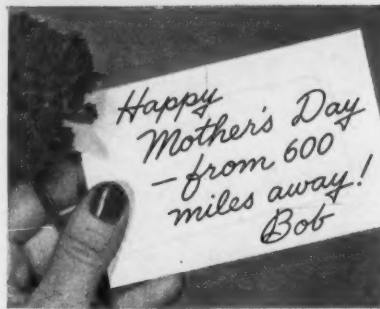 Happy
Mother's Day
- from 600
miles away!
Bob